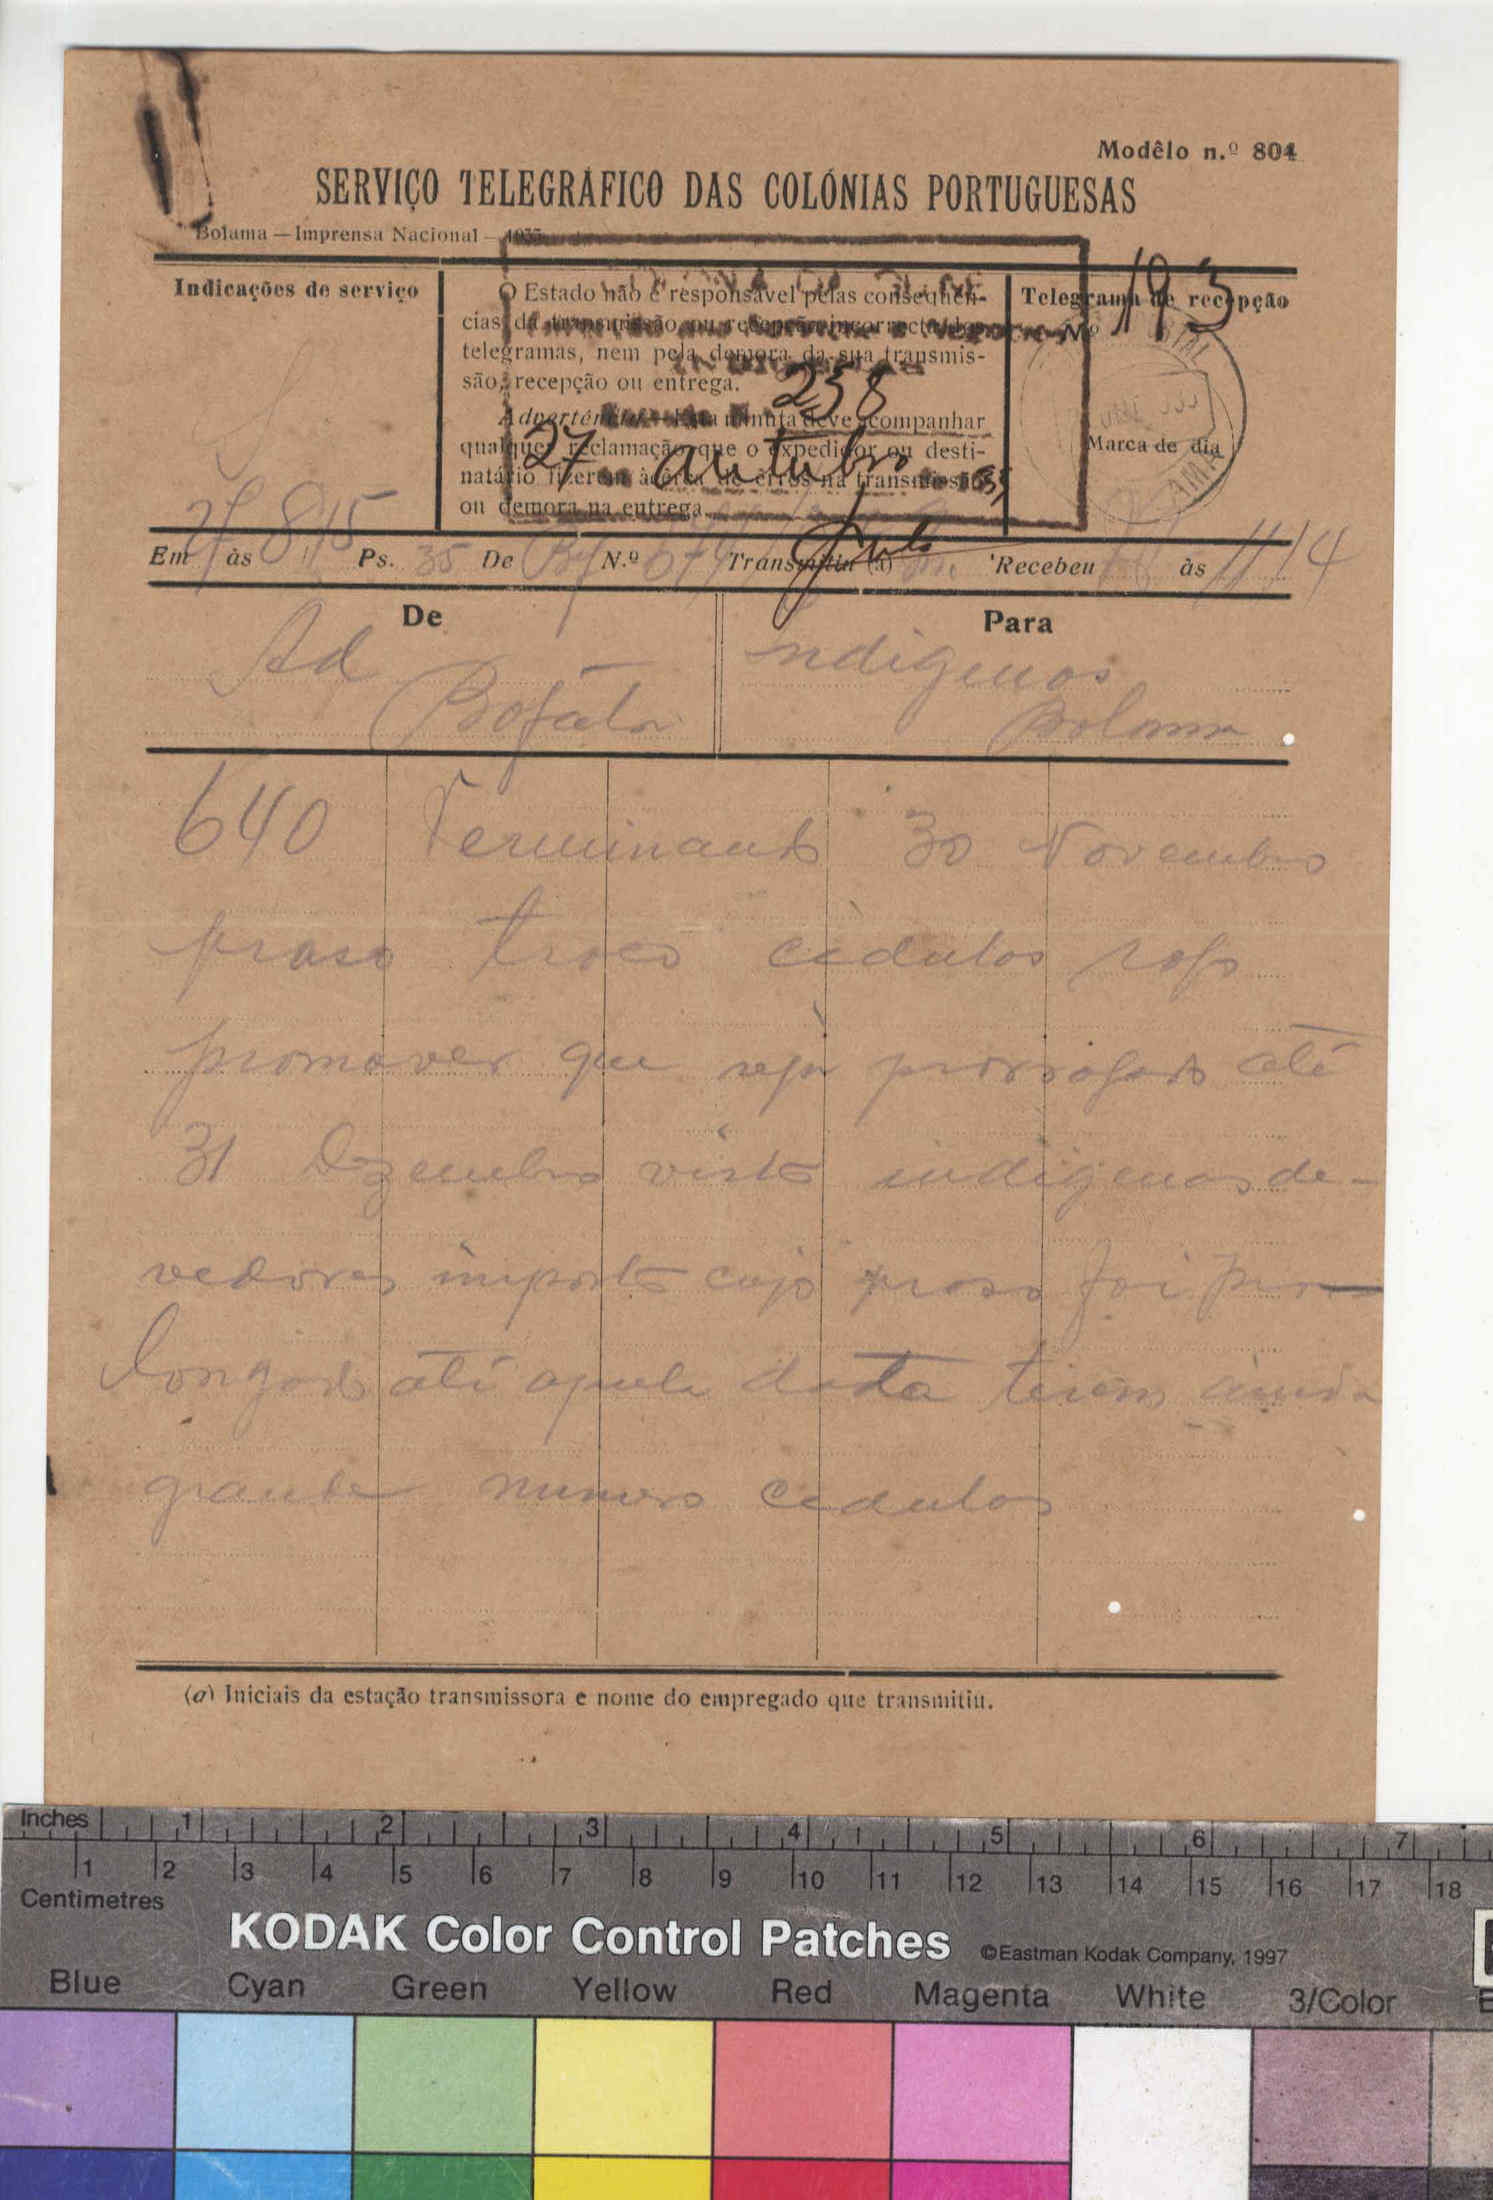 Modêlo n.º 804
SERVIÇO TELEGRÁFICO DAS COLÓNIAS PORTUGUESAS
Bolama — Imprensa Nacional —
Indicações de serviço
O Estado não é responsável pelas conseqüên-
cias da transmissão ou recepção incorrecta dos
telegramas, nem pela demora da sua transmis-
são, recepção ou entrega.
Advertência — Esta minuta deve acompanhar
qualquer reclamação que o expedidor ou desti-
natário fizerem àcêrca de erros na transmissão
ou demora na entrega.
258
27 outubro
Telegrama de recepção
Nº 193
Marca de dia
Em 27 às 8,15 Ps. 35 De Bf N.º Transmitiu (a) Recebeu às 11/14
De
Para
Ad
Bafatá
Indigenas
Bolama
640 Terminando 30 Novembro
praso troco cedulas rogo
promover que seja prorrogado até
31 Dezembro visto indigenas de-
vedores imposto cujo praso foi pro-
longado até aquela data terem ainda
grande numero cedulas
(a) Iniciais da estação transmissora e nome do empregado que transmitiu.
Inches 1 2 3 4 5 6 7
1 2 3 4 5 6 7 8 9 10 11 12 13 14 15 16 17 18
Centimetres
KODAK Color Control Patches ©Eastman Kodak Company, 1997
Blue Cyan Green Yellow Red Magenta White 3/Color